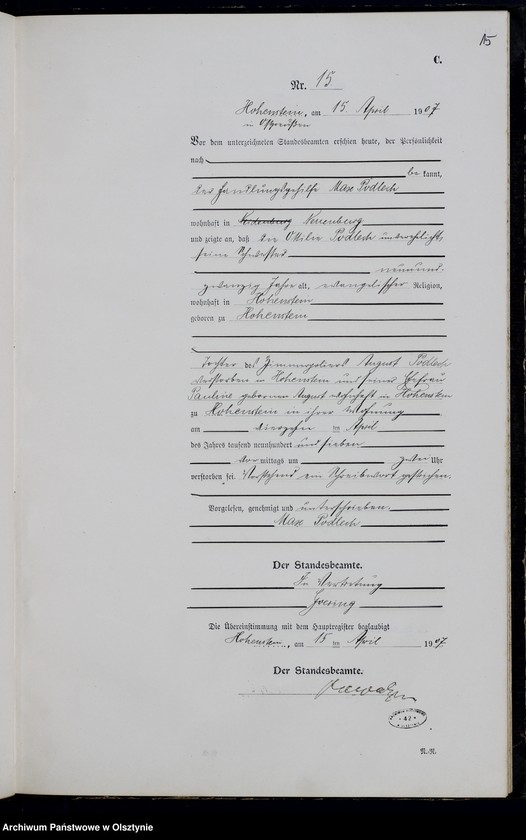 15
C.
Nr. 15
Hohenstein, am 15. April 1907
in Ostpreußen
Vor dem unterzeichneten Standesbeamten erschien heute, der Persönlichkeit
nach
bekannt,
der Handlungsgehilfe Max Podlech
wohnhaft in Neidenburg Neuenburg
und zeigte an, daß die Ottilie Podlech unverehelicht,
seine Schwester
neunund-
zwanzig Jahre alt, evangelischer Religion,
wohnhaft in Hohenstein
geboren zu Hohenstein
Tochter des Zimmerpoliers August Podlech
verstorben in Hohenstein und seiner Ehefrau
Pauline geborenen August wohnhaft in Hohenstein
zu Hohenstein in ihrer Wohnung
am vierzehn ten April
des Jahres tausend neunhundert und sieben
vormittags um zehn Uhr
verstorben sei. Vorstehend ein Schreibwort gestrichen.
Vorgelesen, genehmigt und unterschrieben.
Max Podlech
Der Standesbeamte.
In Vertretung
Die Übereinstimmung mit dem Hauptregister beglaubigt
Hohenstein, am 15 ten April 1907.
Der Standesbeamte.
42
Archiwum Państwowe w Olsztynie